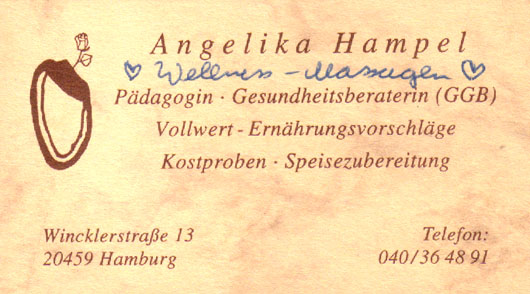 Angelika Hampel
♡ Wellness - Massagen ♡
Pädagogin · Gesundheitsberaterin (GGB)
Vollwert - Ernährungsvorschläge
Kostproben · Speisezubereitung
Wincklerstraße 13
20459 Hamburg
Telefon:
040/36 48 91